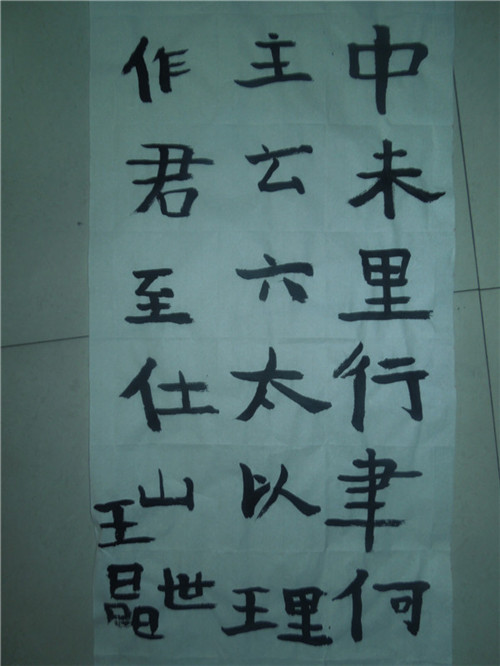 中未里行聿何
主云六太以理
作君至仕山世
王晶